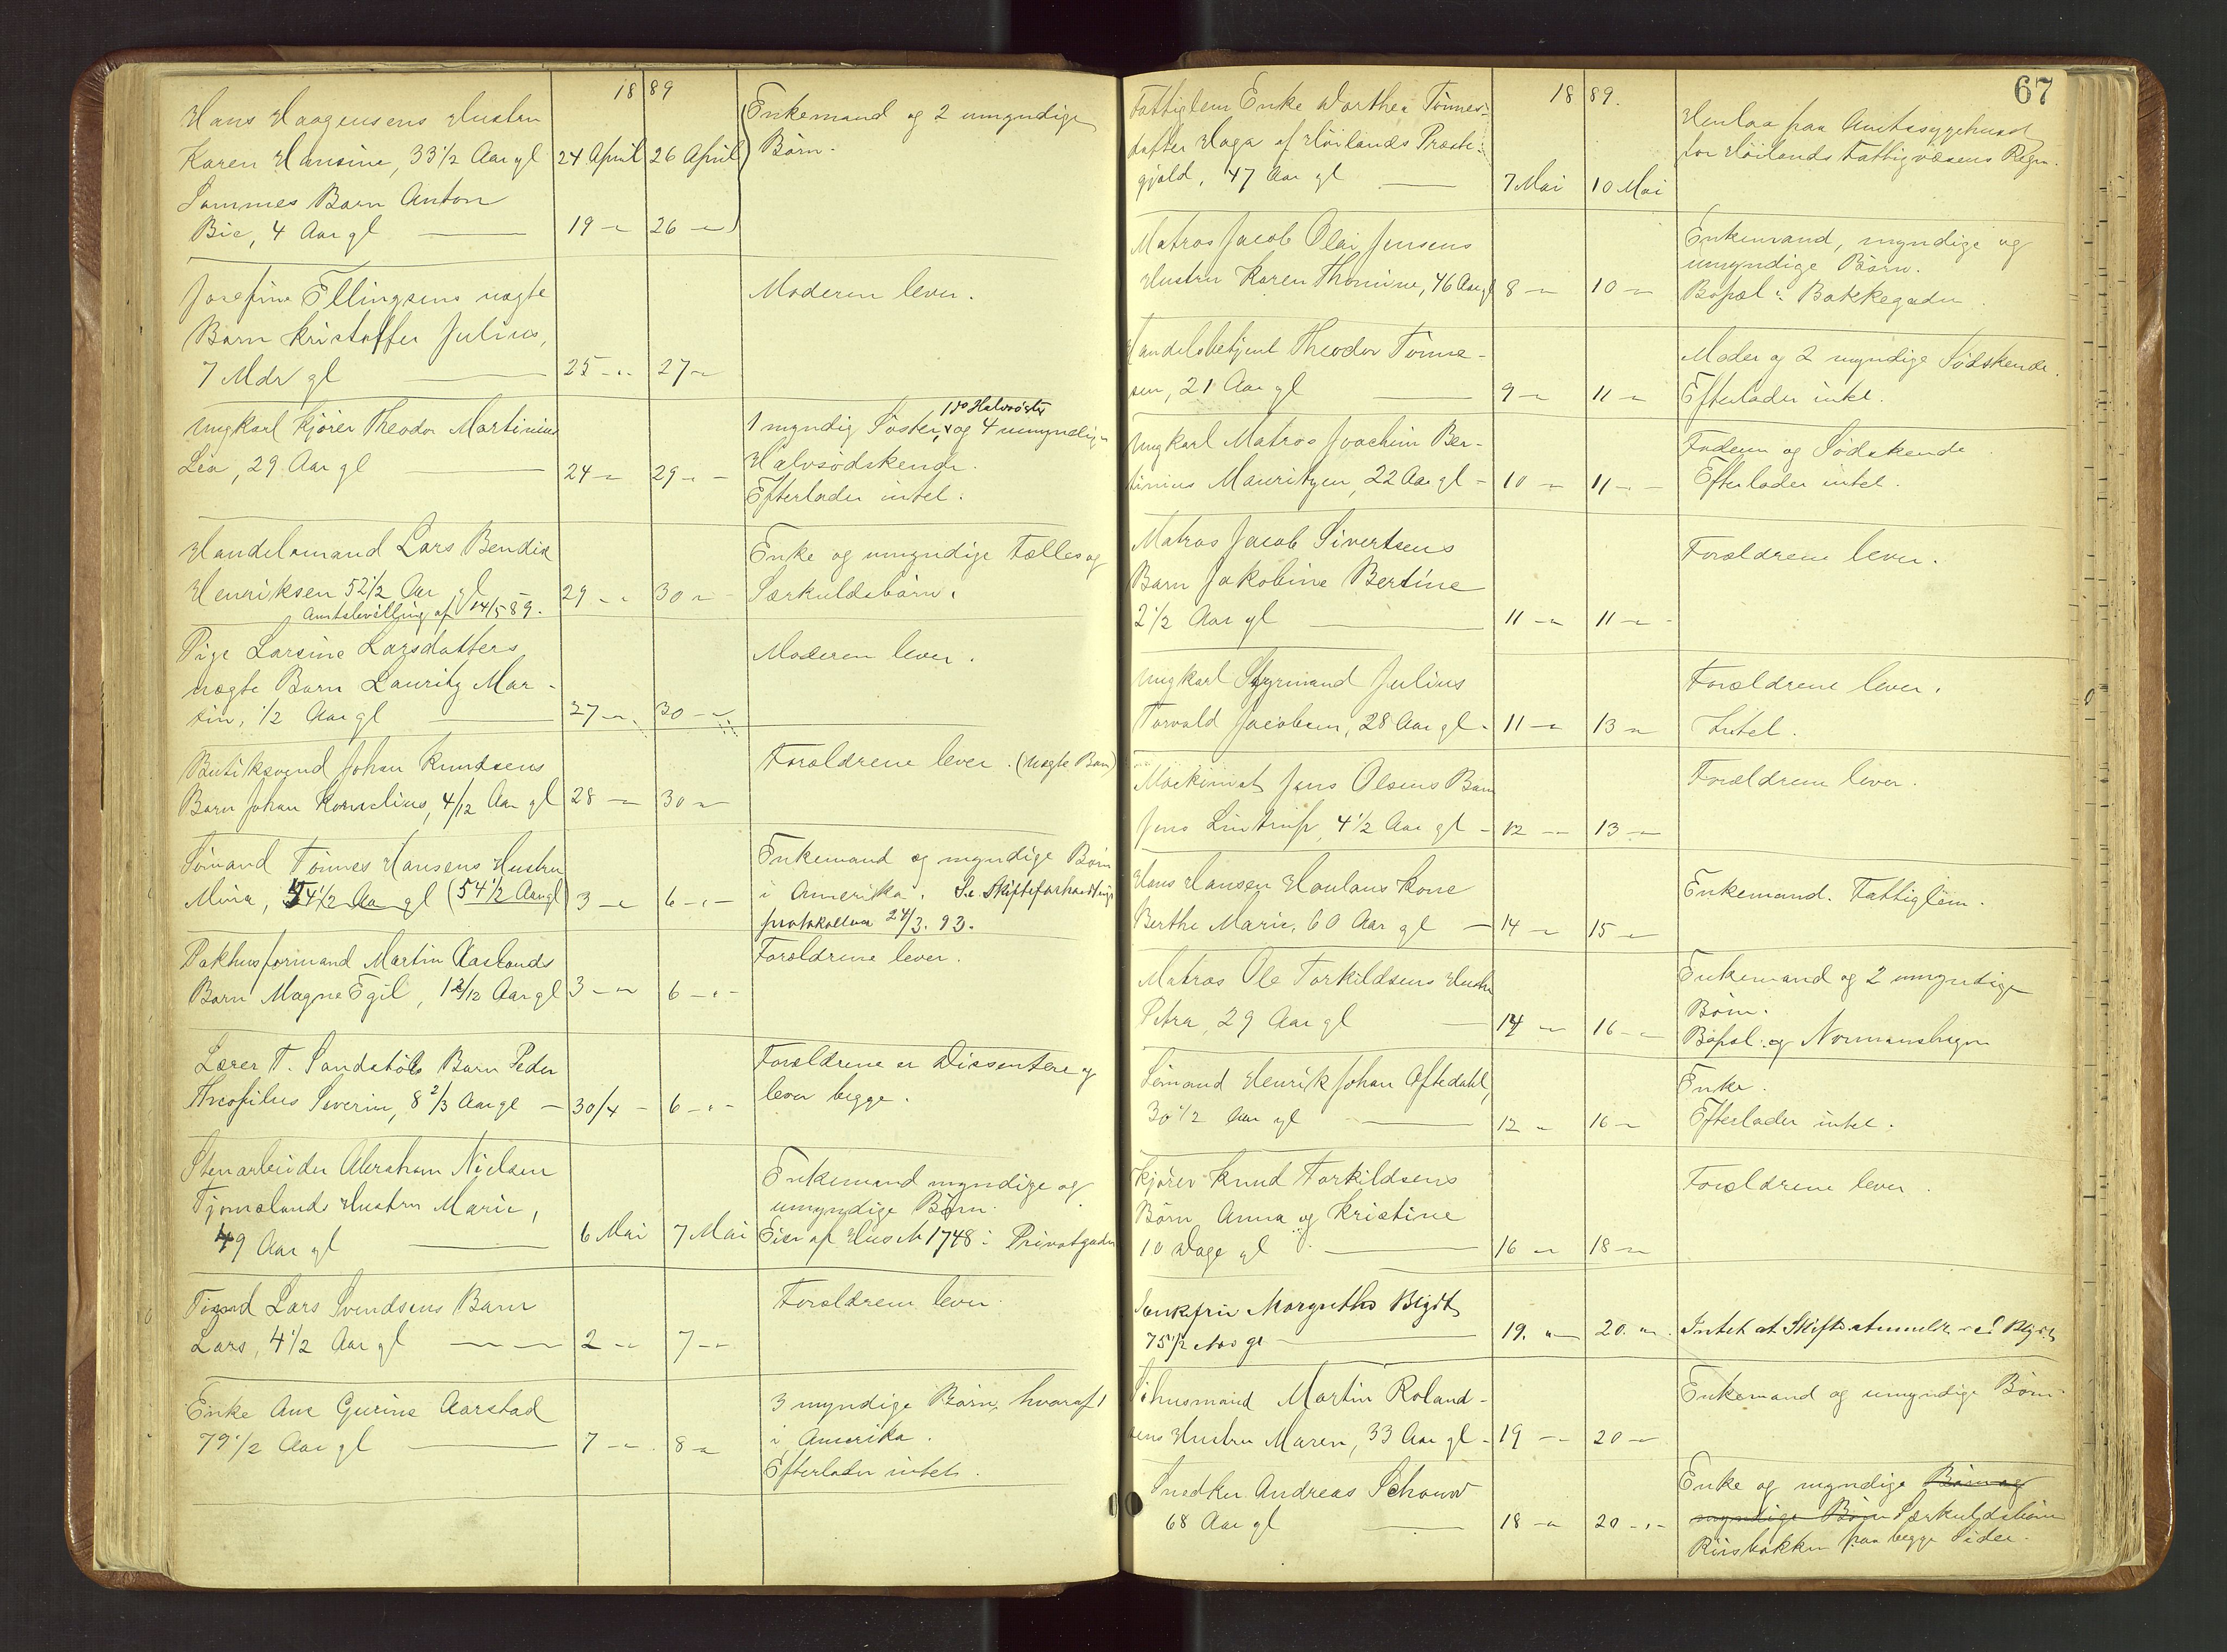 18 89
Hans Haagensens Hustru
Karen Hansine, 33 1/2 Aar gl 24 April 26 April
Enkemand og 2 umyndige
Børn.
Sammes Barn Anton
Bie, 4 Aar gl 19 — 26 —
Josefine Ellingsens uægte
Barn Kristoffer Julius,
7 Mdr gl 25 — 27 —
Moderen lever.
Ungkarl Kjører Theodor Martinius
Lea, 29 Aar gl 24 — 29 —
1 do Halvsøster
1 myndig Søster, og 4 umyndige
Halvsødskende.
Efterlader intet.
Handelsmand Lars Bendix
Henriksen 52 1/2 Aar gl 29 — 30 —
Amtsbevilling af 14/5 89.
Enke og umyndige Fælles og
Særkuldsbørn.
Pige Larsine Larsdatters
uægte Barn Lauritz Mar-
tin, 1/2 Aar gl 27 — 30 —
Moderen lever.
Butiksvend Johan Knudsens
Barn Johan Kornelius, 4/12 Aar gl 28 — 30 —
Forældrene lever. (Uægte Barn)
Sømand Tønnes Hansens Hustru
Mina, 54 1/2 Aar gl (54 1/2 Aar gl) 3 — 6 —
Enkemand og myndige Børn
i Amerika. Se Skifteforhandlings
protokollen 24/3. 93.
Pakhusformand Martin Aaslands
Barn Magne Egil, Aar gl 3 — 6 —
Forældrene lever.
Lærer T. Sandstøls Barn Peder
Theofilus Severin, 8 2/3 Aar gl — 30/4 — 6 —
Forældrene er Dissentere og
lever begge.
Stenarbeider Abraham Nielsen
Tjomslands Hustru Marie,
49 Aar gl 6 Mai 7 Mai
Enkemand myndige og
umyndige Børn.
Eier af Hus № 1748 i Privatgaden
Lars Svendsens Barn
Lars, 4 1/2 Aar gl 2 — 7 —
Forældrene lever.
Enke Ane Gurine Aarstad
79 1/2 Aar gl 7 — 8 —
3 myndige Børn, hvoraf 1
i Amerika.
Efterlader intet.
67
18 89.
Fattiglem Enke Dorthea Tønnes-
datter Haga af Høilands Præste-
gjæld, 47 Aar gl 7 Mai 10 Mai
Henlaa paa Amtssygehuset
for Høilands Fattigvæsens Regn.
Matros Jacob Olai Jensens
Hustru Karen Thomine, 46 Aar gl 8 — 10 —
Enkemand, myndige og
umyndige Børn.
Bopæl i Bakkegaden.
Handelsbetjent Theodor Tønne-
sen, 21 Aar gl 9 — 11 —
Moder og 2 myndige Sødskende.
Efterlader intet.
Ungkarl Matros Joachim Ber-
tinius Mauritzen, 22 Aar gl — 10 — 11 —
Faderen og Sødskende
Efterlader intet.
Matros Jacob Sivertsens
Barn Jakobine Bertine
2 1/2 Aar gl 11 — 11 —
Forældrene lever.
Ungkarl Styrmand Julius
Torvald Jacobsen, 28 Aar gl 11 — 13 —
Forældrene lever.
Intet.
Maskinist Jens Olsens Barn
Jens Lintrup, 4 1/2 Aar gl — 12 — 13 —
Forældrene lever.
Hans Hansen Haulans Kone
Berthe Marie, 60 Aar gl — 14 — 15 —
Enkemand. Fattiglem.
Matros Ole Torkildsens Hustru
Petra, 29 Aar gl 14 — 16 —
Enkemand og 2 umyndige
Børn.
Bopæl: og Normanshagen
Sømand Henrik Johan Aftedahl,
30 1/2 Aar gl 12 — 16 —
Enke.
Efterlader intet.
Kjører Knud Torkildsens
Børn Anna og Kristine
10 Dage gl 16 — 18 —
Forældrene lever.
Margrethe Blydt
75 1/2 Aar gl 19. — 20. —
Intet at Skifte anmeldt ved Blydt
Søhusmand Martin Roland-
sens Hustru Maren, 33 Aar gl — 19 — 20 —
Enkemand og umyndige Børn.
Snedker Andreas Schouw
68 Aar gl 18 — 20 —
Enke og myndige Børn og
myndige Børn Særkuldsbørn
Riisbakken paa begge Sider.